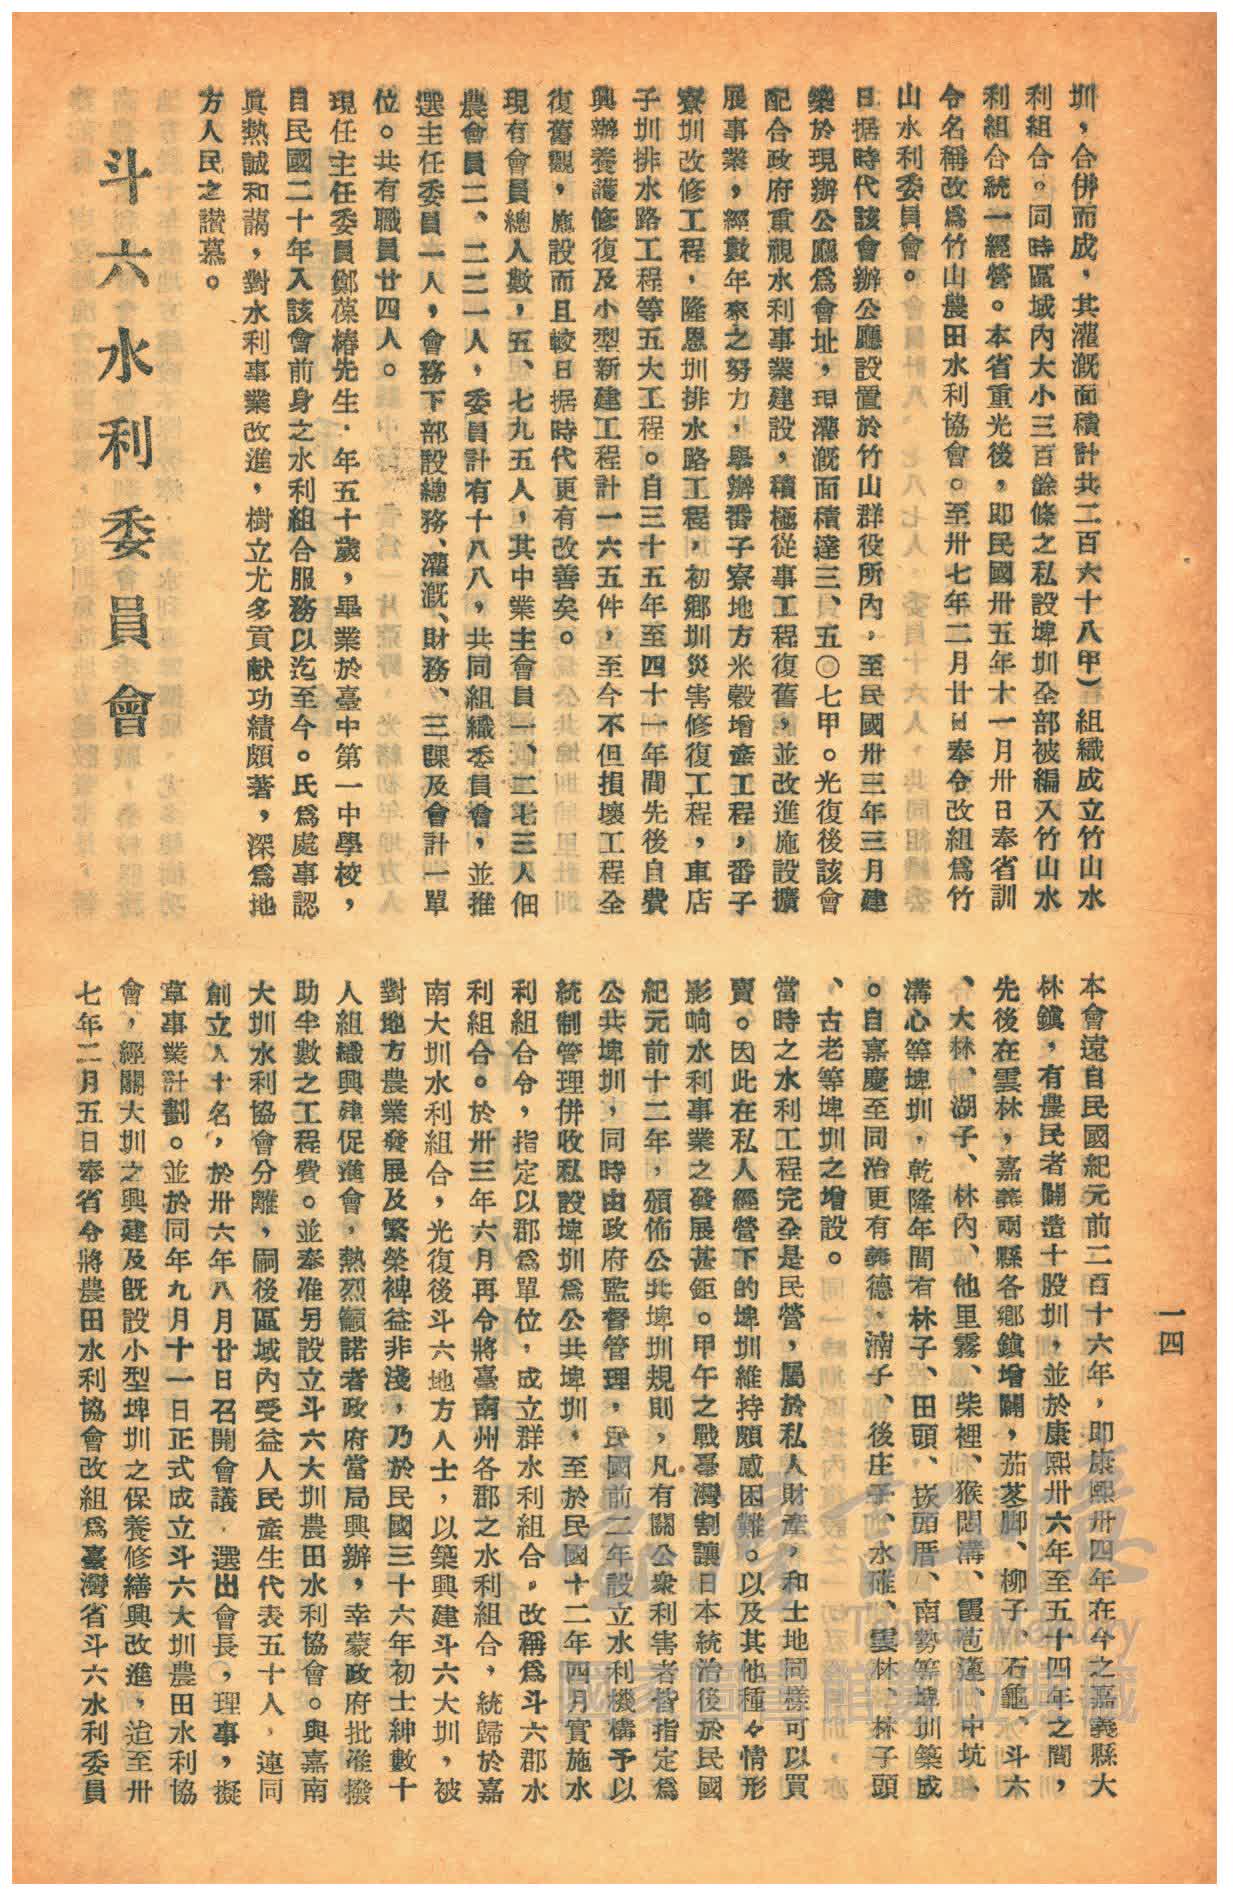 圳，合併而成，其灌漑面積計共二百六十八甲）組織成立竹山水
利組合。同時區域內大小三百餘條之私設埤圳全部被編入竹山水
利組合統一經營。本省重光後，即民國卅五年十一月卅日奉省訓
令名稱改爲竹山農田水利協會。至卅七年二月廿日奉令改組爲竹
山水利委員會。
日据時代該會辦公廳設置於竹山群役所內，至民國卅三年三月建
築於現辦公廳爲會址，現灌漑面積達三、五〇七甲。光復後該會
配合政府重視水利事業建設，積極從事工程復舊，並改進施設擴
展事業，經數年來之努力，舉辦番子寮地方米穀增產工程，番子
寮圳改修工程，隆恩圳排水路工程，初鄉圳災害修復工程，車店
子圳排水路工程等五大工程。自三十五年至四十一年間先後自費
興辦養護修復及小型新建工程計一六五件，至今不但損壞工程全
復舊觀，施設而且較日据時代更有改善矣。
現有會員總人數，五、七九五人，其中業主會員一、二七三人佃
農會員二、二二一人，委員計有十八八，共同組織委員會，並推
選主任委員一人，會務下部設總務、灌漑、財務、三課及會計一單
位。共有職員廿四人。
現任主任委員鄭葆椿先生．年五十歲，畢業於臺中第一中學校，
目民國二十年入該會前身之水利組合服務以迄至今。氏爲處事認
眞熱誠和藹，對水利事業改進，樹立尤多貢献功績頗著，深爲地
方人民之讃慕。
斗六水利委員會
本會遠自民國紀元前二百十六年，即康熙卅四年在今之嘉義縣大
林鎮，有農民者開造十股圳，並於康熙卅六年至五十四年之間，
先後在雲林，嘉義兩縣各鄉鎮增闢，茄苳脚、柳子、石龜、斗六
、大林、湖子、林內、他里霧、柴裡、猴悶溝、霞苞蓮、中坑、
溝心等埤圳，乾隆年間有林子、田頭、崁頭厝、南勢等埤圳築成
。自嘉慶至同治更有義德、湳子、後庄子、水碓、雲林、林子頭
、古老等埤圳之增設。
當時之水利工程完全是民營，屬於私人財產，和土地同樣可以買
賣。因此在私人經營下的埤圳維持頗感困難。以及其他種々情形
影响水利事業之發展甚鉅。甲午之戰臺灣割讓日本統治後於民國
紀元前十二年，頒佈公共埤圳規則，凡有關公衆利害者皆指定爲
公共埤圳，同時由政府監督管理，民國前二年設立水利機構予以
統制管理併收私設埤圳爲公共埤圳，至於民國十二年四月實施水
利組合令，指定以郡爲單位，成立群水利組合，改稱爲斗六郡水
利組合。於卅三年六月再令將臺南州各郡之水利組合，統歸於嘉
南大圳水利組合，光復後斗六地方人士，以築興建斗六大圳，被
對地方農業發展及繁榮裨益非淺，乃於民國三十六年初士紳數十
人組織興建促進會，熱烈籲諾者政府當局興辦，幸蒙政府批准撥
助半數之工程費。並奉准另設立斗六大圳農田水利協會。與嘉南
大圳水利協會分離，嗣後區域內受益人民產生代表五十人，連同
創立人十名，於卅六年八月廿日召開會議．選出會長，理事，擬
草事業計劃。並於同年九月十一日正式成立斗六大圳農田水利協
會，經關大圳之興建及旣設小型埤圳之保養修繕興改進，迨至卅
七年二月五日奉省令將農田水利協會改組爲臺灣省斗六水利委員
一四
臺灣記憶
Taiwan Memory
國家圖書館數位典藏